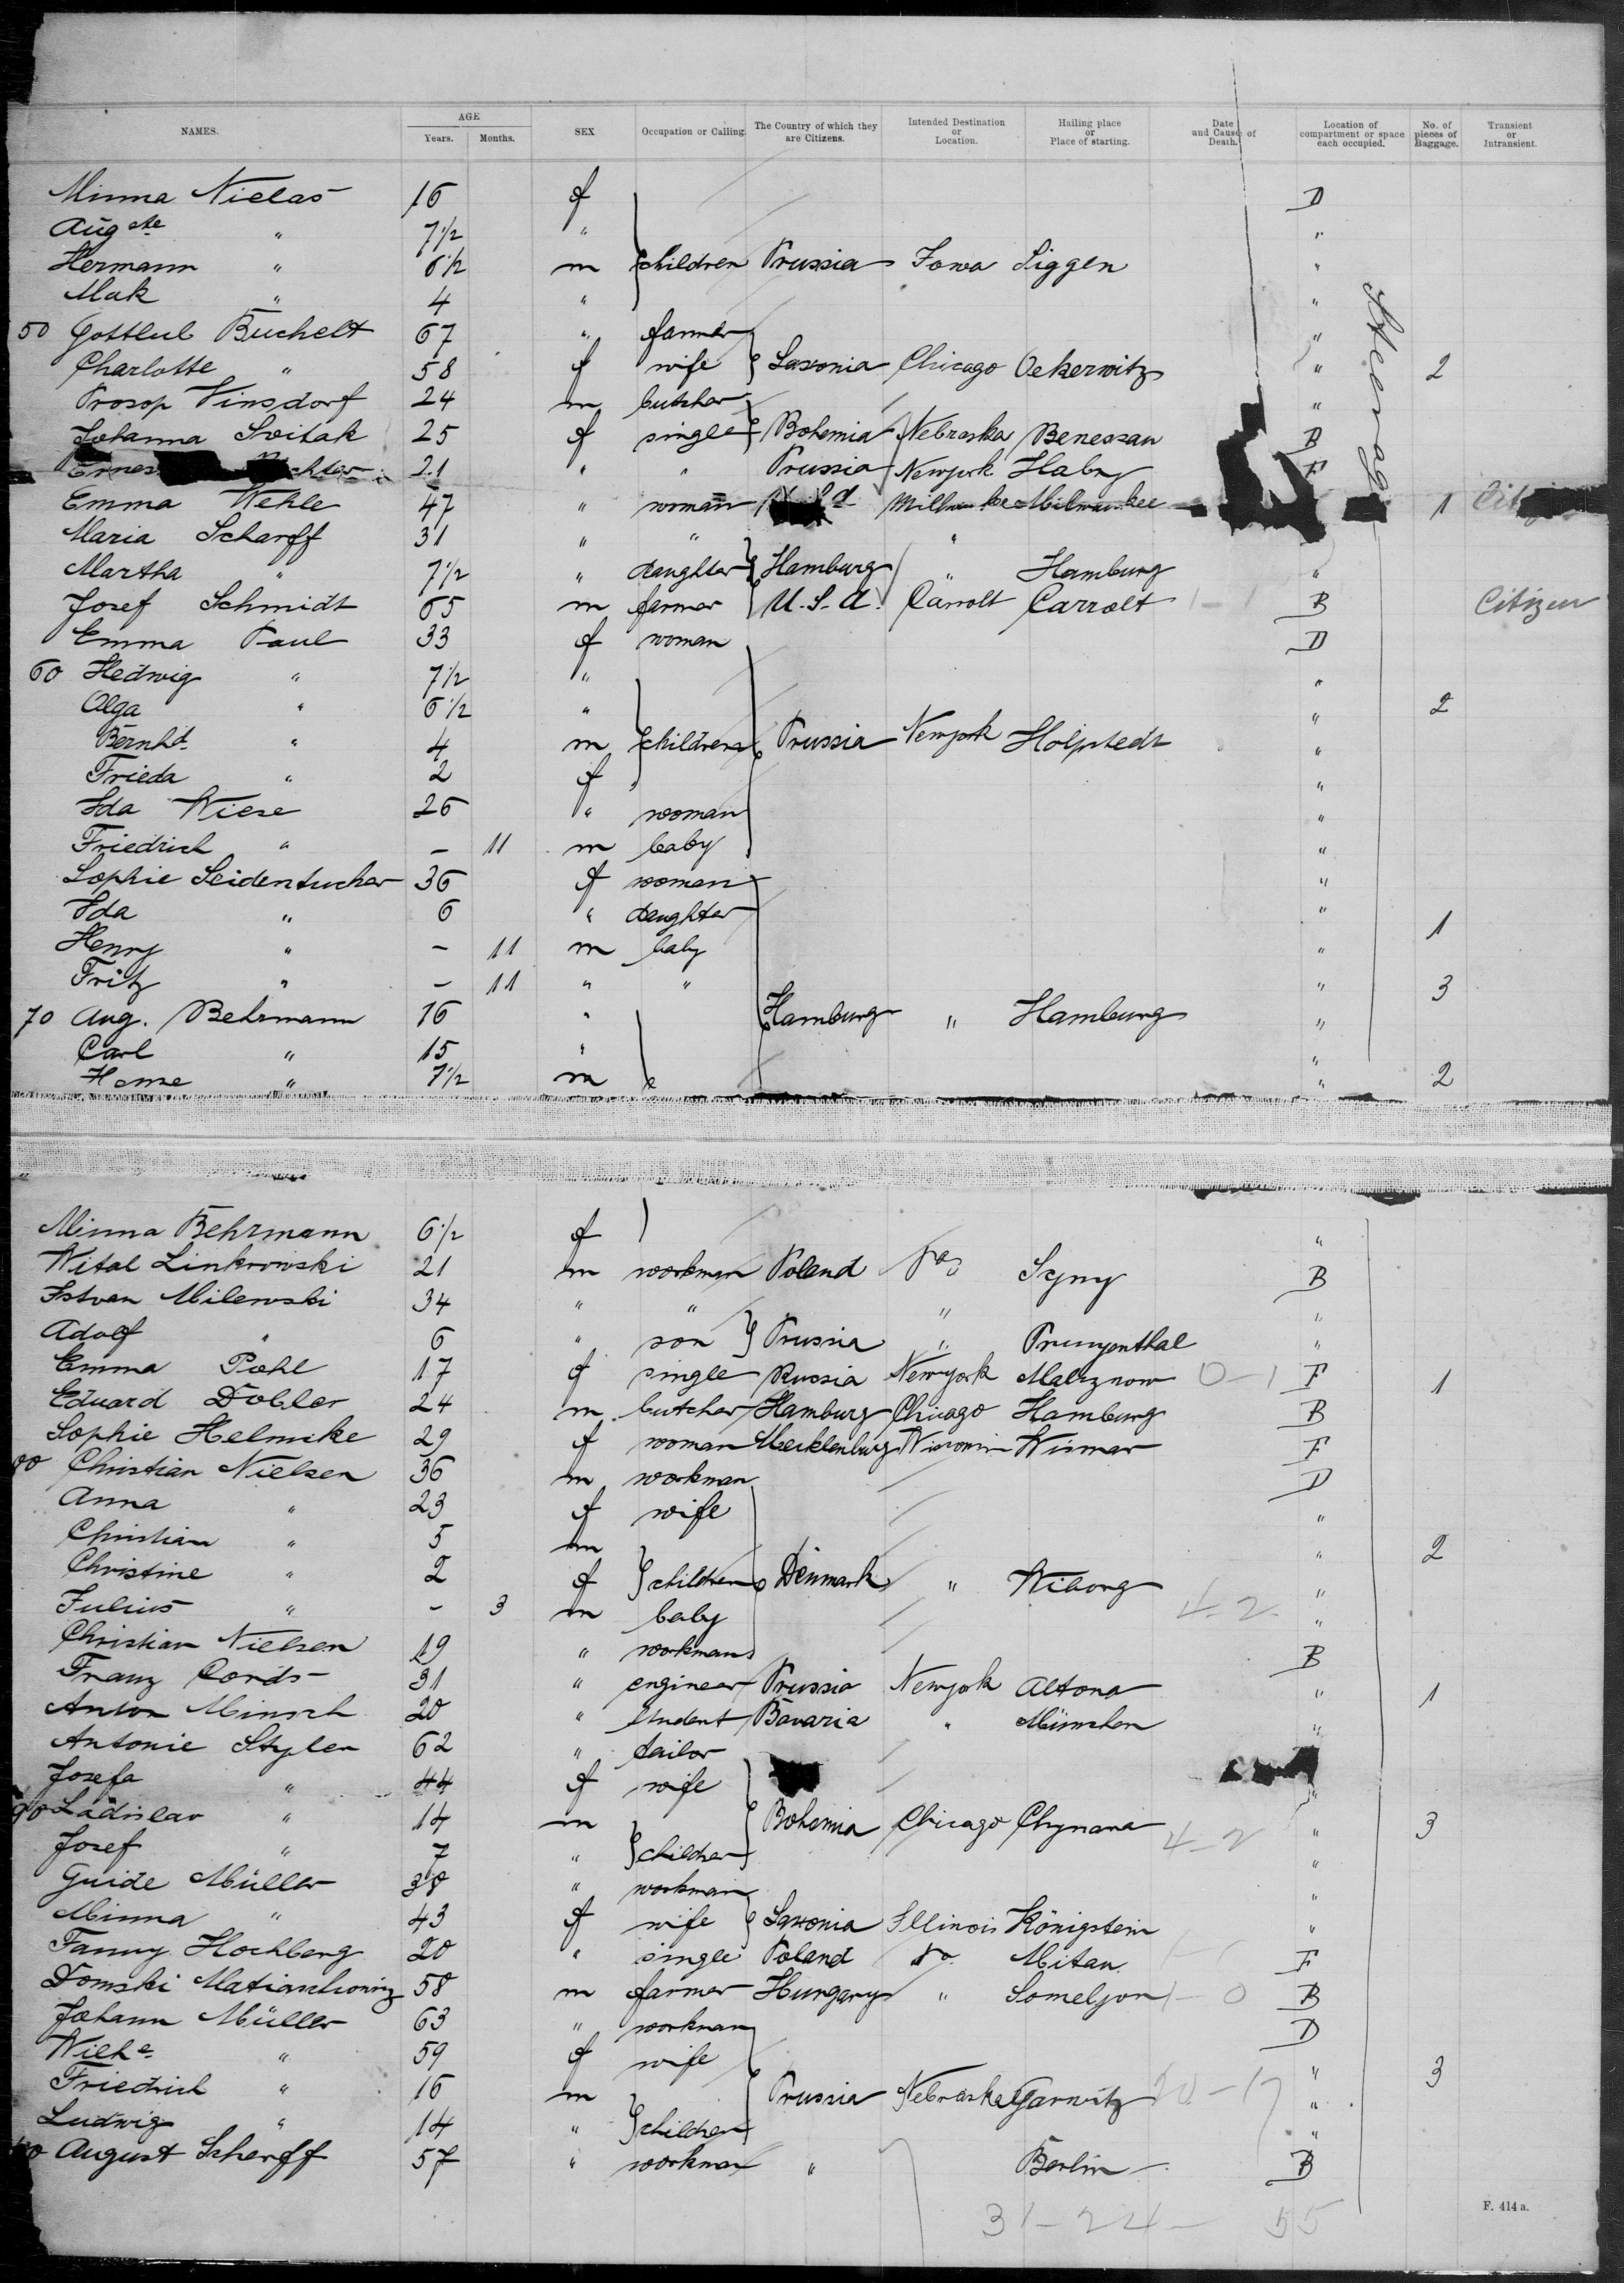 NAMES. AGE Years. Months. SEX Occupation or Calling. The Country of which they are Citizens. Intended Destination or Location. Hailing place or Place of starting. Date and Cause of Death. Location of compartment or space each occupied. No. of pieces of Baggage. Transient or Intransient.
Minna Nielas 16 f D
Aug ste " 7 1/2 " "
Hermann " 6 1/2 m children Prussia Iowa Siggen "
Mak " 4 " "
50 Gottlieb Büchelt 67 " farmer "
Charlotte " 58 f wife Saxonia Chicago Oekerwitz " 2
Prosop Vinsdorf 24 m butcher "
Johanna Svitak 25 f single Bohemia Nebraska Benessau B
21 " " Prussia Newyork Habry F
Emma Wehle 47 " woman Milwaukee Milwaukee 1
Maria Scharff 31 " " "
Martha " 7 1/2 " daughter Hamburg " Hamburg "
Josef Schmidt 65 m farmer U.S.A. Carrolt Carrolt 1-1 B Citizen
Emma Paul 33 f woman D
60 Hedwig " 7 1/2 " "
Olga " 6 1/2 " " 2
Bernhd. " 4 m children Prussia Newyork Holpstedt "
Frieda " 2 f "
Ida Wiese 26 " woman "
Friedrich " – 11 m baby "
Sophie Seidentucher 36 f woman "
Ida " 6 " daughter " 1
Henry " – 11 m baby "
Fritz " – 11 " " " 3
70 Aug. Behrmann 16 " Hamburg " Hamburg "
Carl " 15 " "
" 7 1/2 m " 2
Steerage
Minna Behrmann 6 1/2 f "
Wital Linkrowski 21 m workman Poland Pa Szny B
Istvan Milewski 34 " " " "
Adolf " 6 " son Prussia " "
Emma Pohl 17 f single Russia Newyork 0-1 F 1
Eduard Dobler 24 m butcher Hamburg Chicago Hamburg B
Sophie Helmike 29 f woman Mecklenburg Wisconsin Wismar F
80 Christian Nielsen 36 m workman D
Anna " 23 f wife "
Christian " 5 m " 2
Christine " 2 f children Denmark " Wiborg "
Julius " – 3 m baby 4-2 "
Christian Nielsen 19 " workman B
Franz Cords 31 " engineer Prussia Newyork Altona " 1
Anton Minsch 20 " student Bavaria " München "
Antonie Stylen 62 " tailor
Josefa " 44 f wife "
90 Ladislav " 14 m Bohemia Chicago Chynava 4-2 " 3
Josef " 7 " children "
Guide Müller 38 " workman "
Minna " 43 f wife Saxonia Illinois Königstein "
Fanny Hochberg 20 " single Poland do Mitau F
Domski 58 m farmer Hungary " 1-0 B
Johann Müller 63 " workman D
Wilhe. " 59 f wife " 3
Friedrich " 16 m Prussia Nebraska Garwitz "
Ludwig " 14 " children "
August Scherff 57 " workman " Berlin B
31-24- 55
F. 414 a.